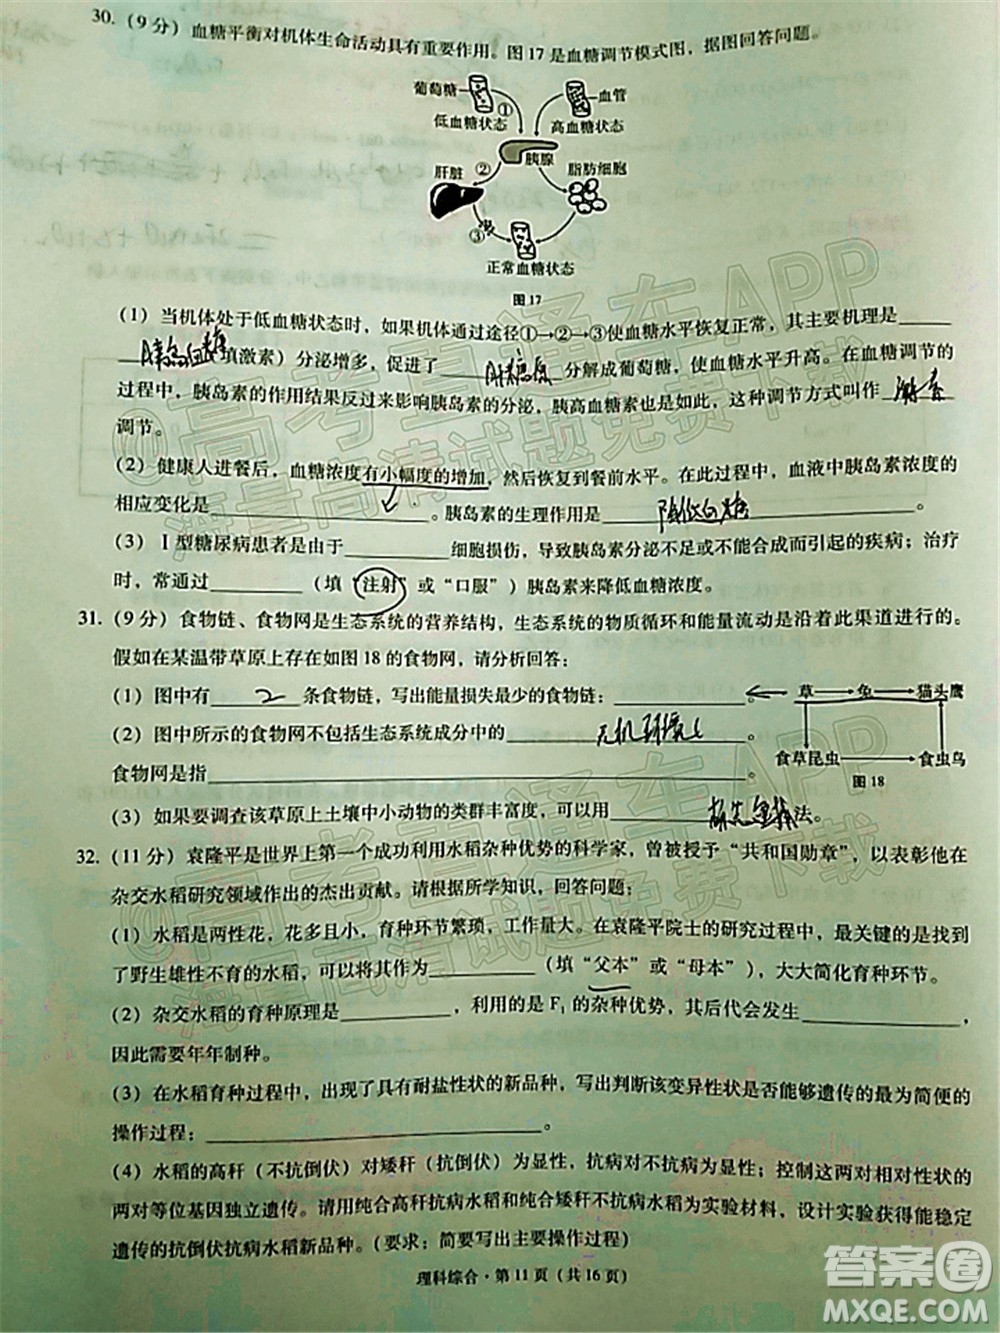 30. (9 分) 血糖平衡对机体生命活动具有重要作用。图 17 是血糖调节模式图，据图回答问题。
葡萄糖 ① 血管
低血糖状态 高血糖状态
胰腺
肝脏 ② 脂肪细胞
③
正常血糖状态
图 17
(1) 当机体处于低血糖状态时，如果机体通过途径①→②→③使血糖水平恢复正常，其主要机理是____
____（填激素）分泌增多，促进了 肝糖原 分解成葡萄糖，使血糖水平升高。在血糖调节的
过程中，胰岛素的作用结果反过来影响胰岛素的分泌，胰高血糖素也是如此，这种调节方式叫作 激素
调节。
(2) 健康人进餐后，血糖浓度有小幅度的增加，然后恢复到餐前水平。在此过程中，血液中胰岛素浓度的
相应变化是____。胰岛素的生理作用是 降低血糖 。
(3) Ⅰ型糖尿病患者是由于____细胞损伤，导致胰岛素分泌不足或不能合成而引起的疾病；治疗
时，常通过____（填“注射”或“口服”）胰岛素来降低血糖浓度。
31. (9 分) 食物链、食物网是生态系统的营养结构，生态系统的物质循环和能量流动是沿着此渠道进行的。
假如在某温带草原上存在如图 18 的食物网，请分析回答：
(1) 图中有 2 条食物链，写出能量损失最少的食物链：____。
草 兔 猫头鹰
(2) 图中所示的食物网不包括生态系统成分中的 无机环境 。
食草昆虫 食虫鸟
食物网是指____。
图 18
(3) 如果要调查该草原上土壤中小动物的类群丰富度，可以用____法。
32. (11 分) 袁隆平是世界上第一个成功利用水稻杂种优势的科学家，曾被授予“共和国勋章”，以表彰他在
杂交水稻研究领域作出的杰出贡献。请根据所学知识，回答问题：
(1) 水稻是两性花，花多且小，人工操作育种环节繁琐，工作量大。在袁隆平院士的研究过程中，最关键的是找
到了野生雄性不育的水稻，可以将其作为____（填“父本”或“母本”），大大简化育种环节。
(2) 杂交水稻的育种原理是____，利用的是 F₁ 的杂种优势，其后代会发生____，
因此需要年年制种。
(3) 在水稻育种过程中，出现了具有耐盐性状的新品种，写出判断该变异性状是否能够遗传的最为简便的
操作过程：____。
(4) 水稻的高秆（不抗倒伏）对矮秆（抗倒伏）为显性，抗病对不抗病为显性；控制这两对相对性状的
两对等位基因独立遗传。请用纯合高秆抗病水稻和纯合矮秆不抗病水稻为实验材料，设计实验获得能稳定
遗传的抗倒伏抗病水稻新品种。（要求：简要写出主要操作过程）
理科综合·第 11 页（共 16 页）
答案圈
MXQE.COM
@高考直通车APP
海量高清试题免费下载
@高考直通车APP
海量高清试题免费下载